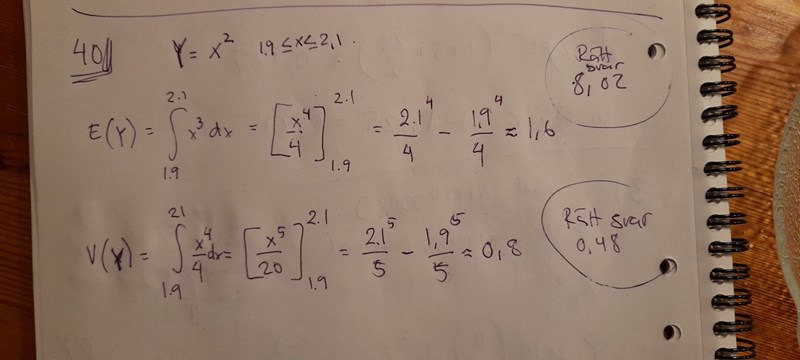 401 Y = x² 1.9 ≤ x ≤ 2,1.
Rätt
svar
8,02
E(Y) = ∫_{1.9}^{2.1} x³ dx = [x⁴/4]_{1.9}^{2.1} = 2.1⁴/4 - 1,9⁴/4 ≈ 1,6
Rätt svar
0,48
V(Y) = ∫_{1.9}^{21} x⁴/4 dx = [x⁵/20]_{1.9}^{2.1} = 2.1⁵/5 - 1,9⁵/5 ≈ 0,8